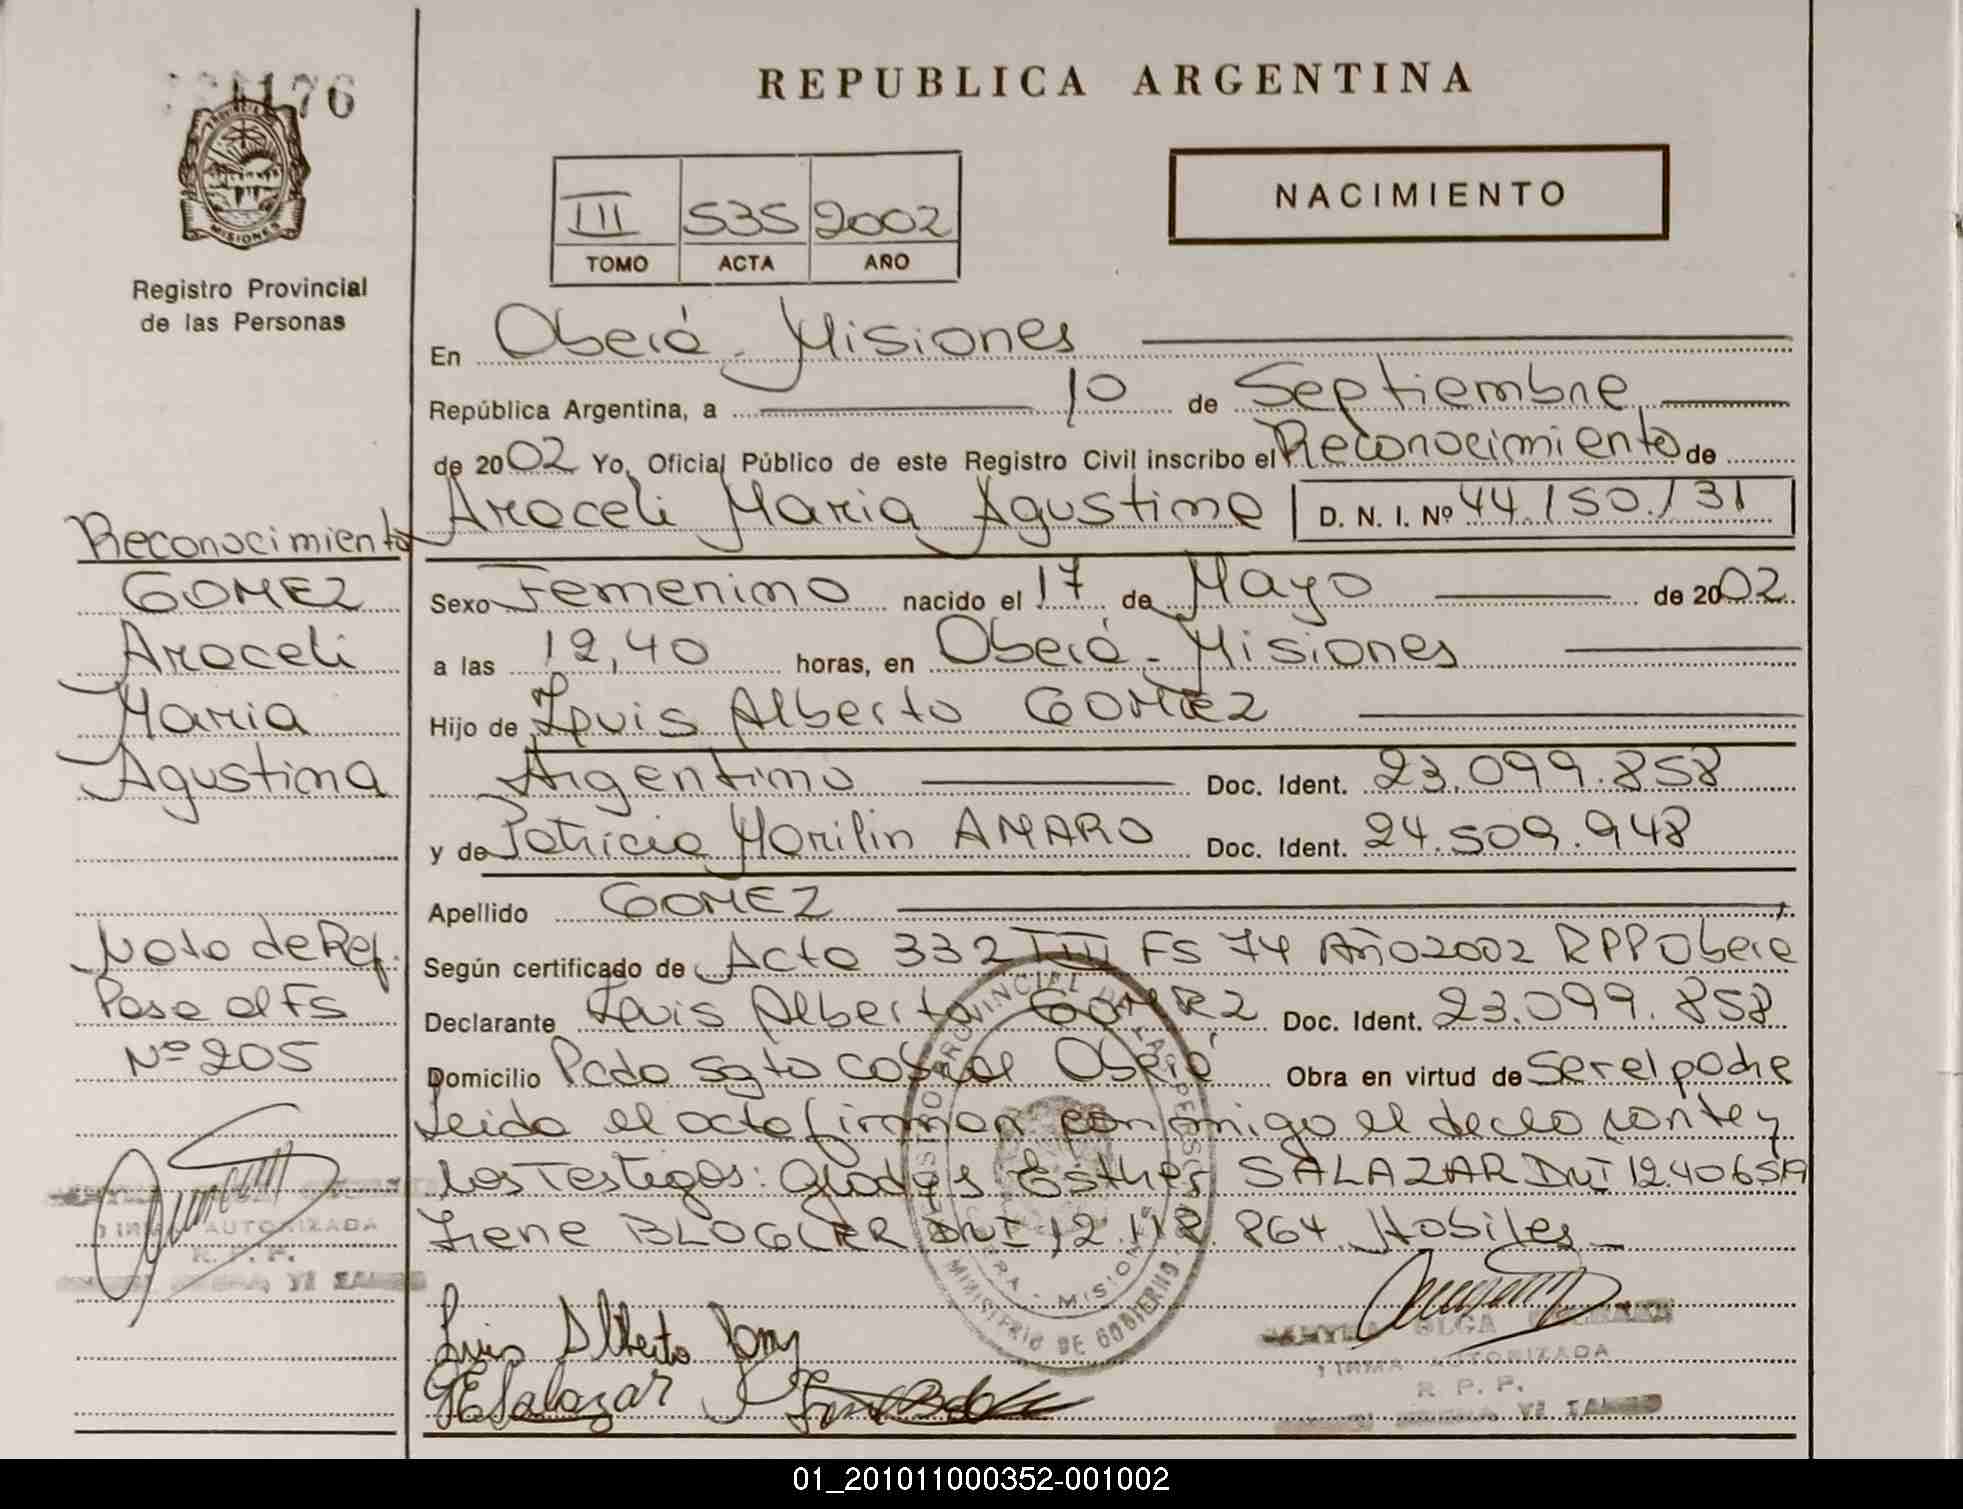 176
PROVINCIA DE
MISIONES
Registro Provincial
de las Personas
REPUBLICA ARGENTINA
III 535 2002
TOMO ACTA AÑO
NACIMIENTO
En Oberá - Misiones
República Argentina, a 10 de Septiembre
de 2002 Yo, Oficial Público de este Registro Civil inscribo el Reconocimiento de
Araceli Maria Agustina D. N. I. Nº 44.150.131
Sexo Femenino nacido el 17 de Mayo de 2002
a las 12,40 horas, en Oberá - Misiones
Hijo de Luis Alberto GOMEZ
Argentino Doc. Ident. 23.099.858
y de Patricia Marilin AMARO Doc. Ident. 24.509.948
Apellido GOMEZ
Según certificado de Acta 332 T III FS 74 Año 2002 RPP Oberá
Declarante Luis Alberto GOMEZ Doc. Ident. 23.099.858
Domicilio Pcdo Sgto Cabral Oberá Obra en virtud de ser el padre
Leida el acta firman conmigo el declarante y
los Testigos: Gladys Esther SALAZAR DNI 12.406.519
Irene BLOGLER DNI 12.118.864 Habiles
Luis Alberto Gomez
GESalazar
OLGA
FIRMA AUTORIZADA
R. P. P.
Reconocimiento
GOMEZ
Araceli
Maria
Agustina
Nota de Ref.
Pasa al FS
Nº 205
FIRMA AUTORIZADA
R. P. P.
REGISTRO PROVINCIAL DE LAS PERSONAS
MINISTERIO DE GOBIERNO
MISIONES
01_201011000352-001002